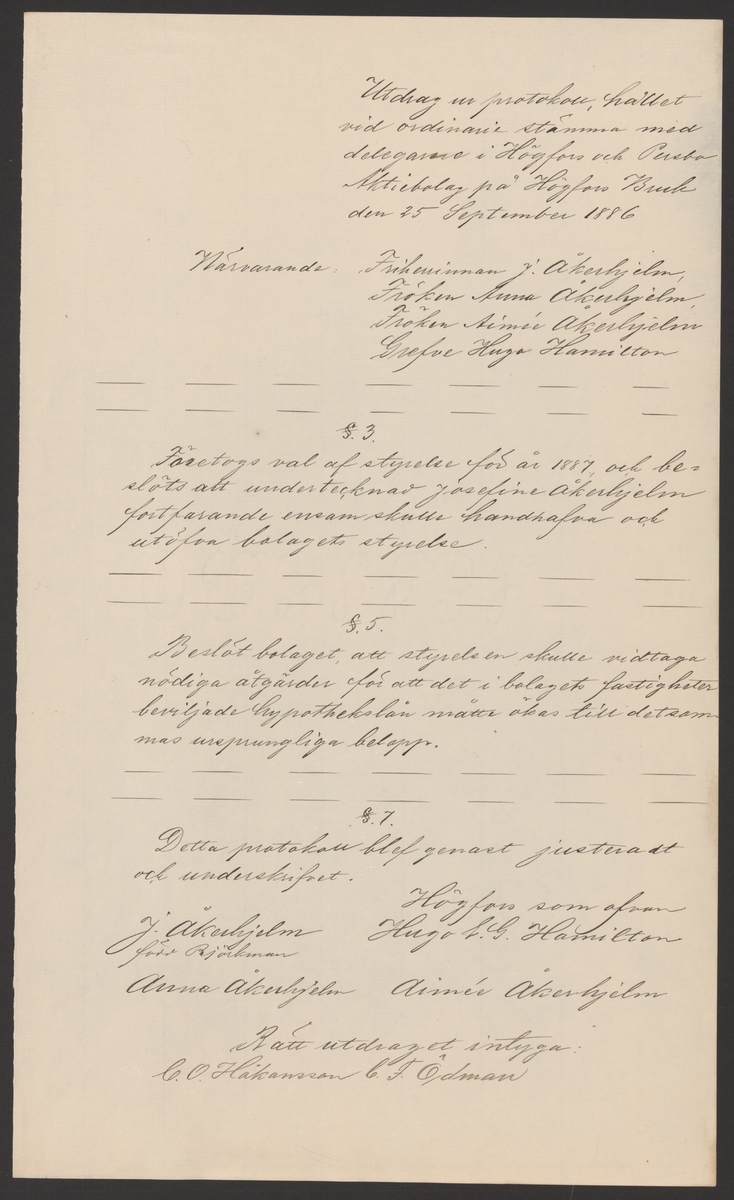 Utdrag ur protokoll, hållet
vid ordinarie stämma med
delegarne i Högfors och Persbo
Aktiebolag på Högfors Bruk
den 25 September 1886
Närvarande: Friherrinnan J. Åkerhjelm,
Fröken Anna Åkerhjelm,
Fröken Aimée Åkerhjelm
Grefve Hugo Hamilton
§. 3.
Företogs val af styrelse för år 1887, och be-
slöts att undertecknad Josefine Åkerhjelm
fortfarande ensam skulle handhafva och
utöfva bolagets styrelse.
§. 5.
Beslöt bolaget, att styrelsen skulle vidtaga
nödiga åtgärder för att det i bolagets fastigheter
beviljade hypothekslån måtte ökas till detsam-
mas ursprungliga belopp.
§. 7.
Detta protokoll blef genast justeradt
och underskrifvet.
Högfors som ofvan
J. Åkerhjelm Hugo E. G. Hamilton
född Björkman
Anna Åkerhjelm Aimée Åkerhjelm
Rätt utdraget intyga:
C. O. Håkansson C. F. Ödman